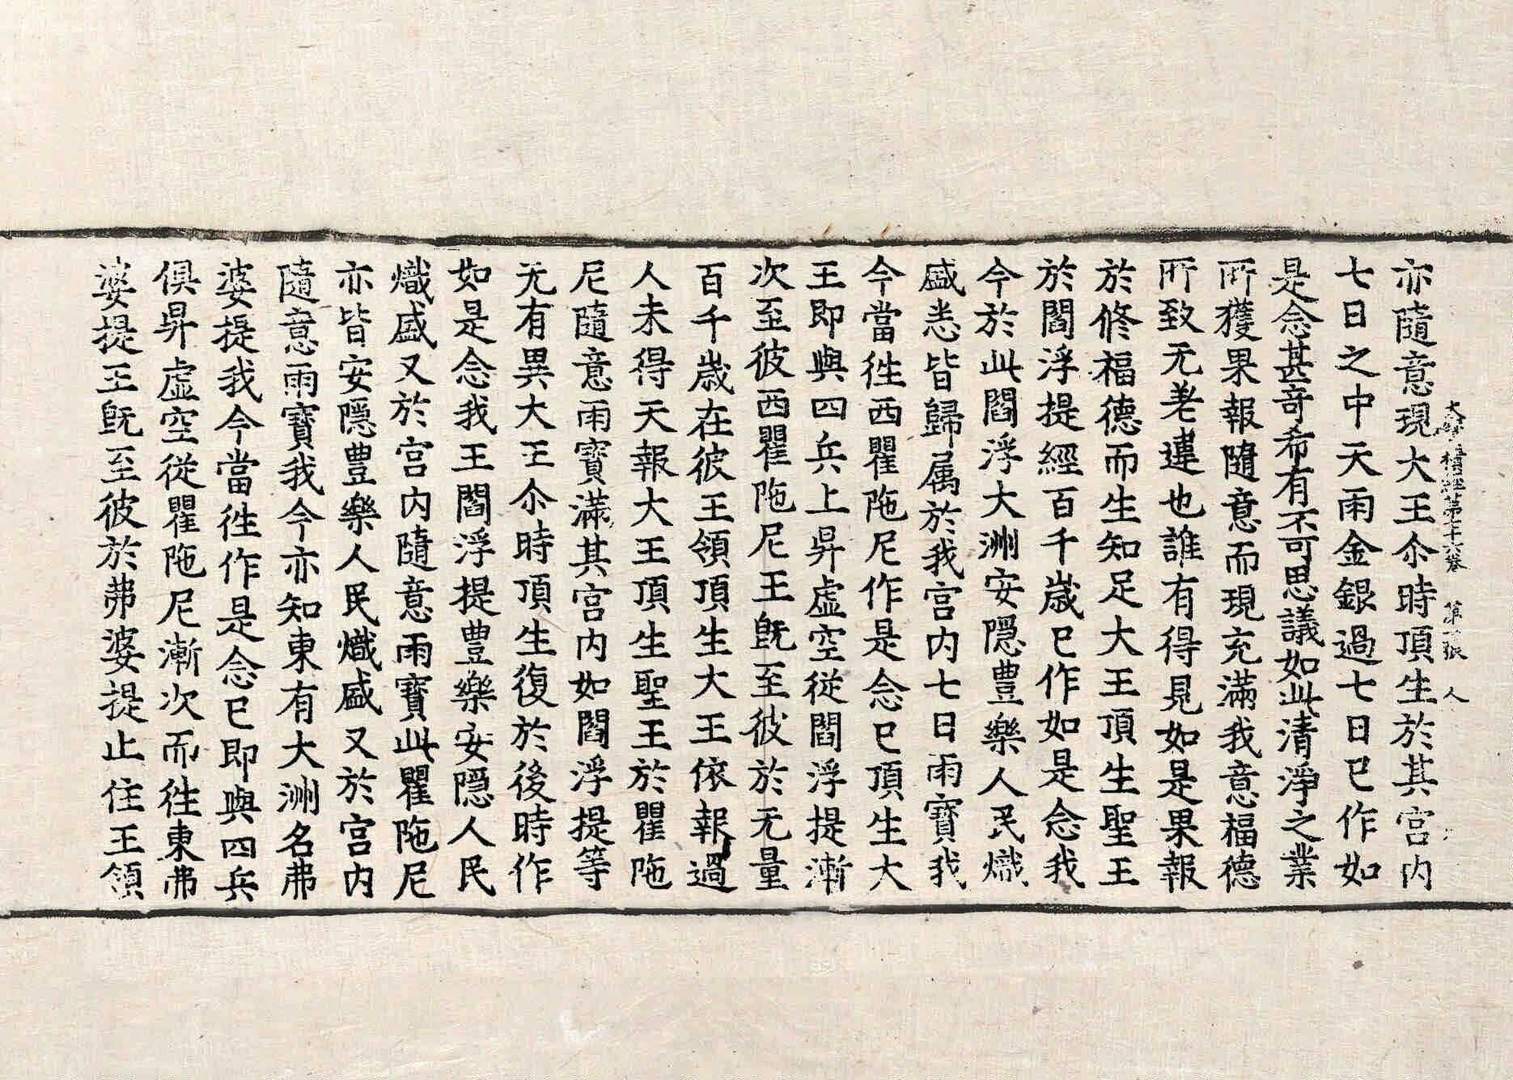 大寶積經第七十六卷 第 張 人
亦隨意現大王尒時頂生於其宮内
七日之中天雨金銀過七日已作如
是念甚竒希有不可思議如此清淨之業
所獲果報隨意而現充滿我意福德
所致无差違也誰有得見如是果報
於修福德而生知足大王頂生聖王
於閻浮提經百千歲已作如是念我
今於此閻浮大洲安隱豊樂人民熾
盛悉皆歸属於我宮内七日雨寶我
今當徃西瞿陁尼作是念已頂生大
王即與四兵上昇虛空從閻浮提漸
次至彼西瞿陁尼王旣至彼於无量
百千歲在彼王領頂生大王依報過
人未得天報大王頂生聖王於瞿陁
尼隨意雨寶滿其宮内如閻浮提等
无有異大王尒時頂生復於後時作
如是念我王閻浮提豊樂安隱人民
熾盛又於宮内隨意雨寶此瞿陁尼
亦皆安隱豊樂人民熾盛又於宮内
隨意雨寶我今亦知東有大洲名弗
婆提我今當徃作是念已即與四兵
俱昇虛空從瞿陁尼漸次而徃東弗
婆提王旣至彼於弗婆提止住王領